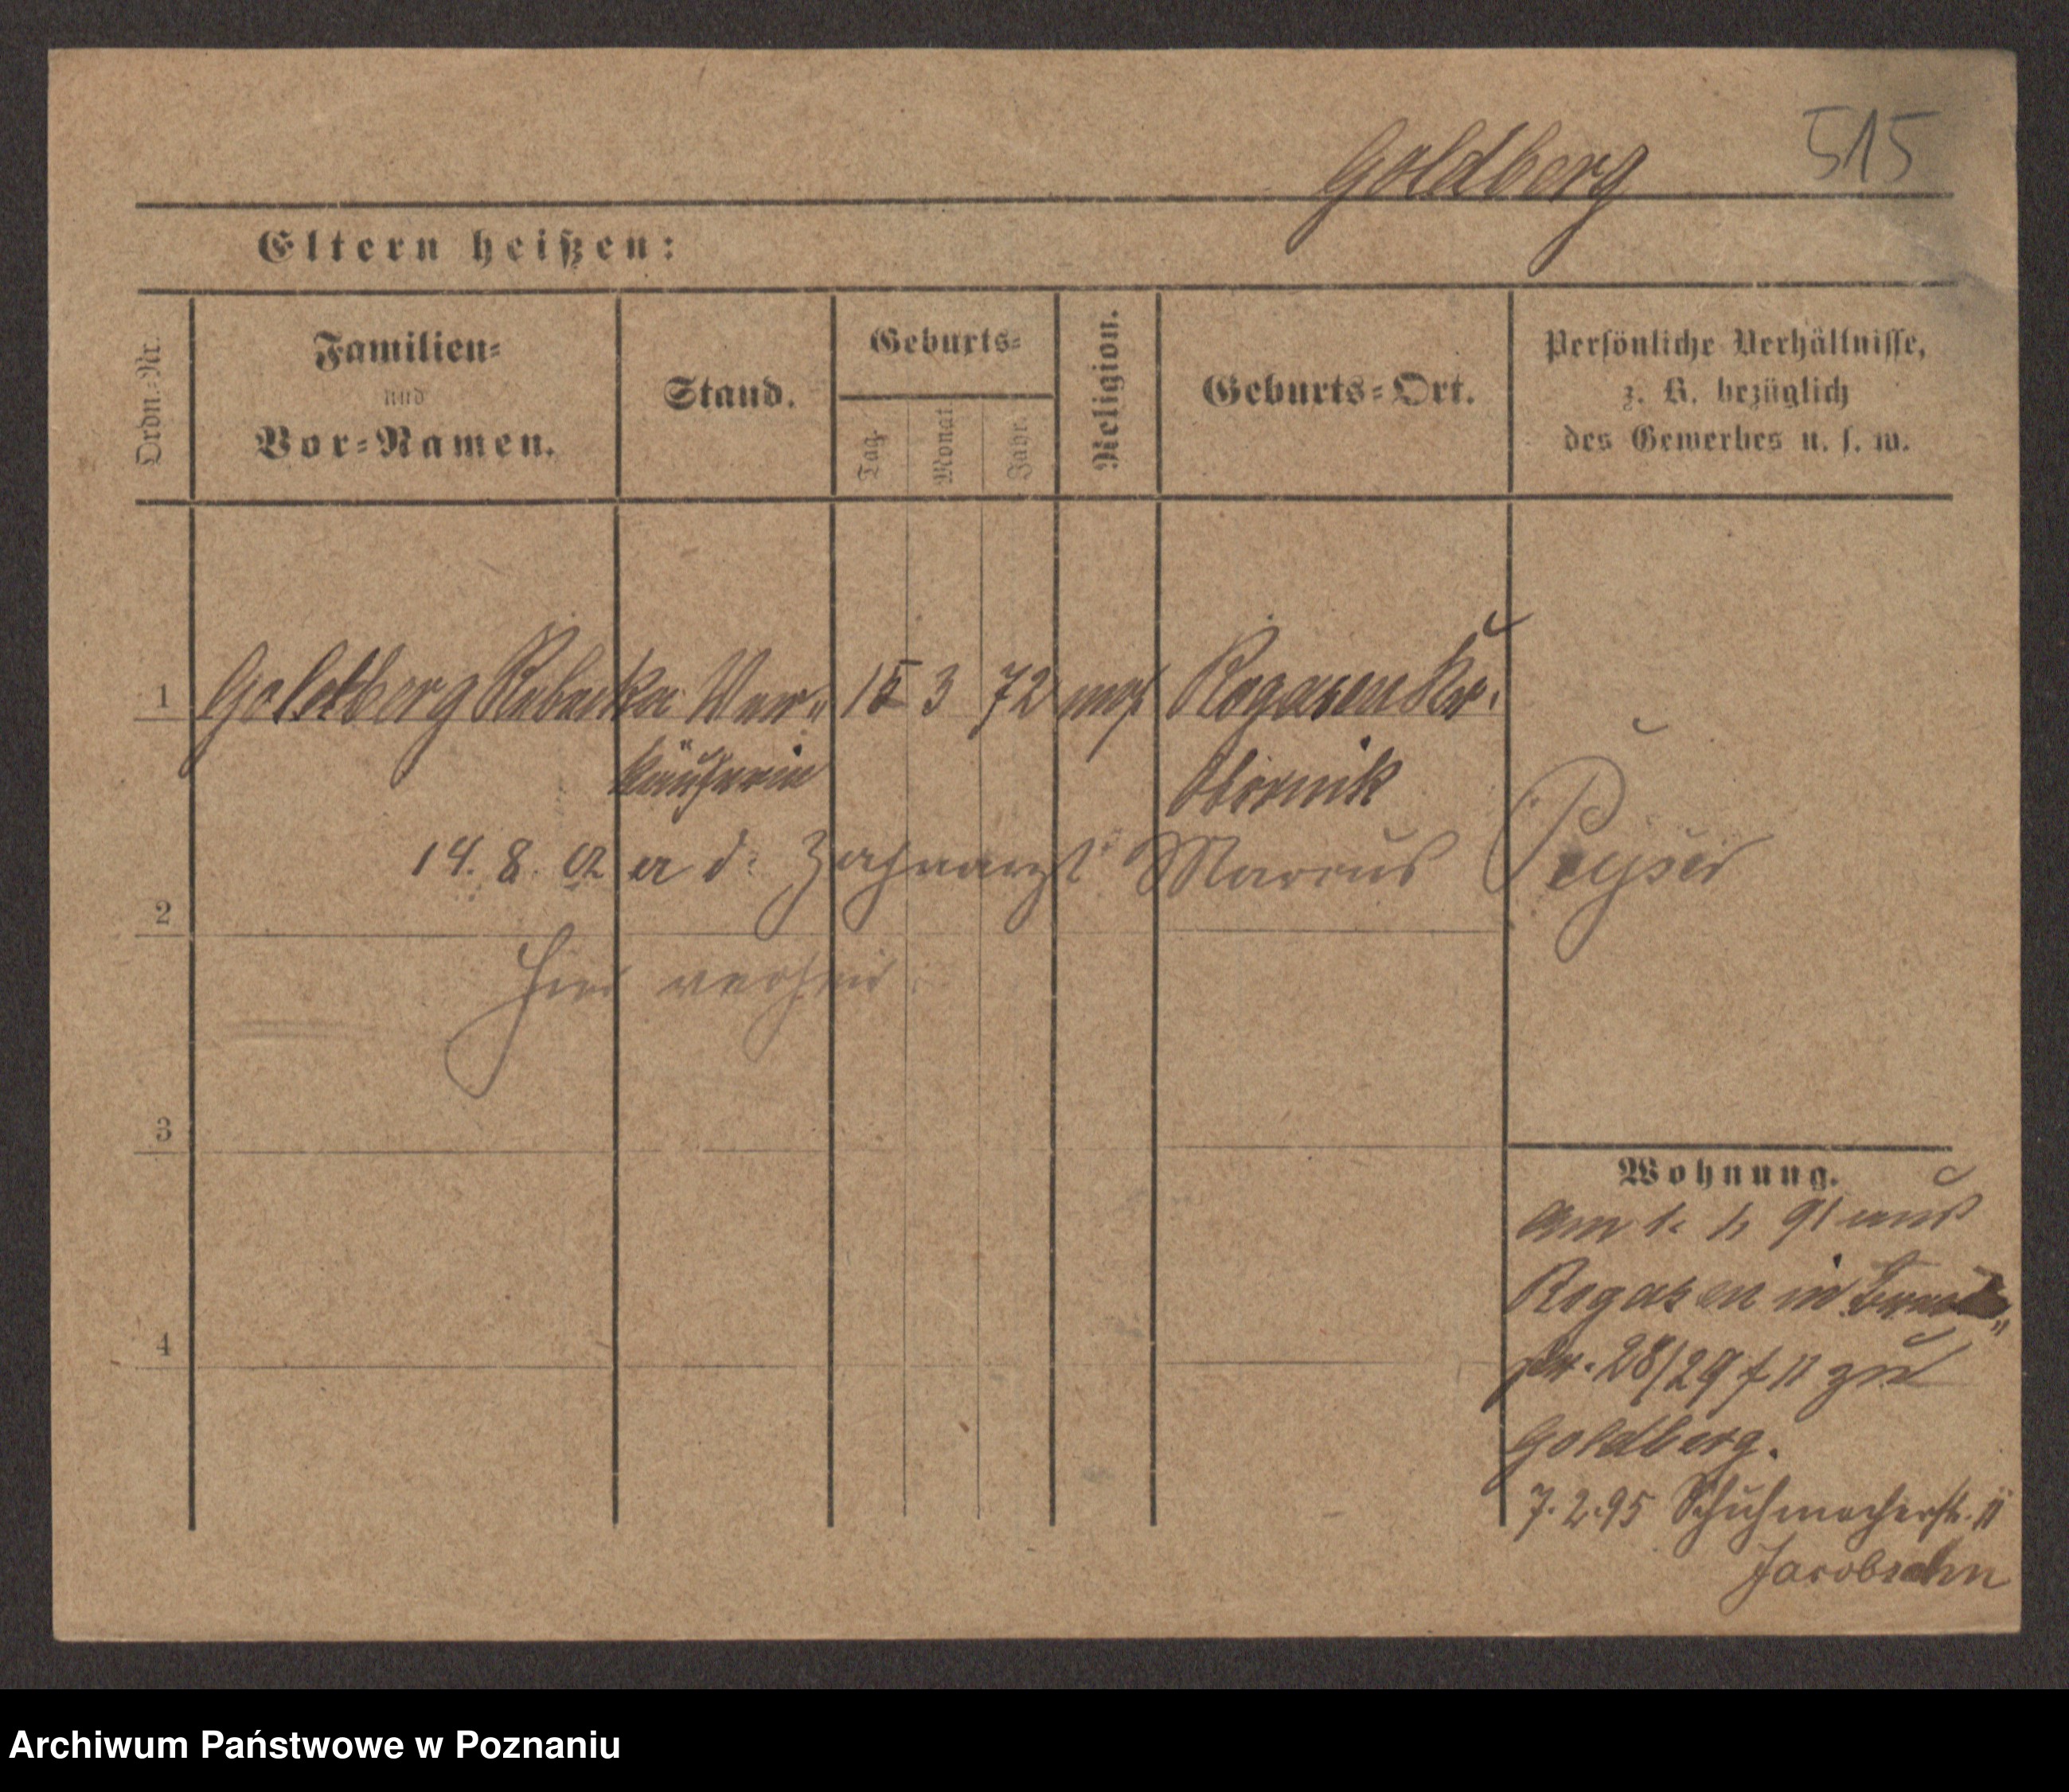 515
Goldberg
Eltern heißen:
Ordn.-Nr.
Familien-
und
Vor-Namen.
Stand.
Geburts-
Tag.
Monat.
Jahr.
Religion.
Geburts-Ort.
Persönliche Verhältnisse,
z. B. bezüglich
des Gewerbes u. s. w.
1 Goldberg Rebecka Ver- 15 3 72 mos Rogasen Kr.
käuferin Obornik
14. 8. 02 a d. Zahnarzt Marcus Peyser
2
hier verheir.
3
4
Wohnung.
Am 1. 1. 91 aus
Rogasen in
str. 28/29 f II zu
Goldberg.
7. 2. 95 Schuhmacherstr. 11
Jacobsohn
Archiwum Państwowe w Poznaniu